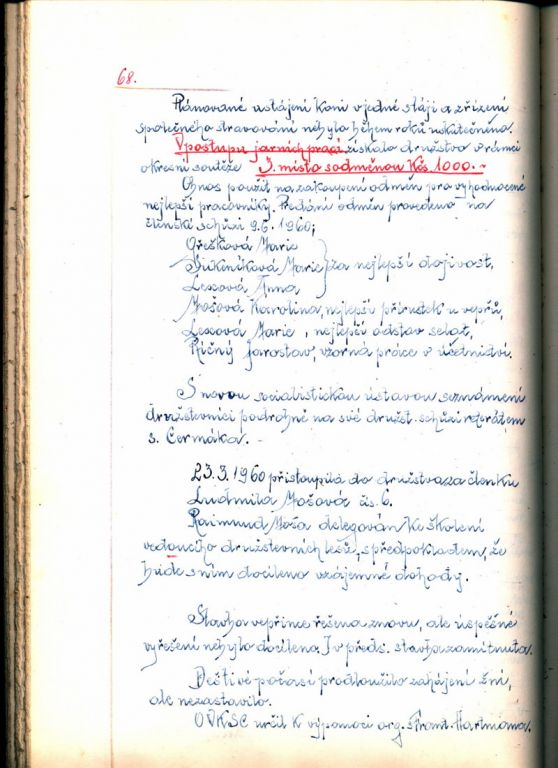 68.
Plánované ustájení koní v jedné stáji a zřízení
společného stravování nebylo během roků uskutečněno.
V postupu jarních prací získalo družstvo v rámci
okresní soutěže I. místo s odměnou Kčs 1000.-
Obnos použit na zakoupení odměn pro vyhodnocené
nejlepší pracovníky. Předání odměn provedeno na
členské schůzi 9.6.1960;
Ořešková Marie
Sukeníková Marie } za nejlepší dojivost,
Lexová Anna
Mošová Karolina, nejlepší přírustek u vepřů,
Lexová Marie, nejlepší odstav selat,
Říčný Jaroslav, vzorná práce v účetnictví.
S novou socialistickou ústavou seznámeni
družstevníci podrobně na své družst. schůzi referátem
s. Čermáka. -
23.3.1960 přistoupila do družstva za členku
Ludmila Mošová čís. 6.
Raimund Moša delegován ke školení
vedoucího družstevních lesů, s předpokladem, že
bude s ním docíleno vzájemné dohody.
Stavba vepřince řešena znovu, ale úspěšné
vyřešení nebylo docíleno. I v předs. stavba zamítnuta.
Deštivé počasí prodloužilo zahájení žní,
ale nezastavilo.
OVKSČ určil k výpomoci org. s. Frant. Hartmana.